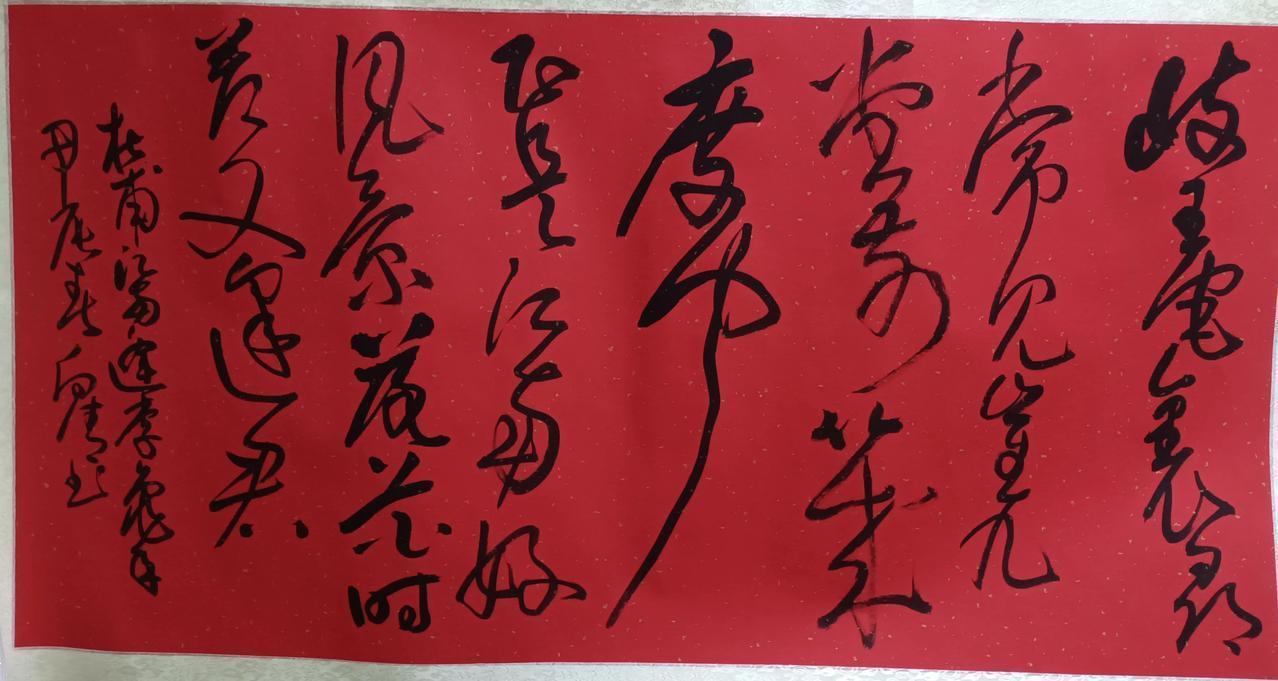 岐王宅裏尋
常见崔九
堂前幾
度闻
正是江南好
风景落花时
节又逢君
杜甫江南逢李龟年
甲辰春书